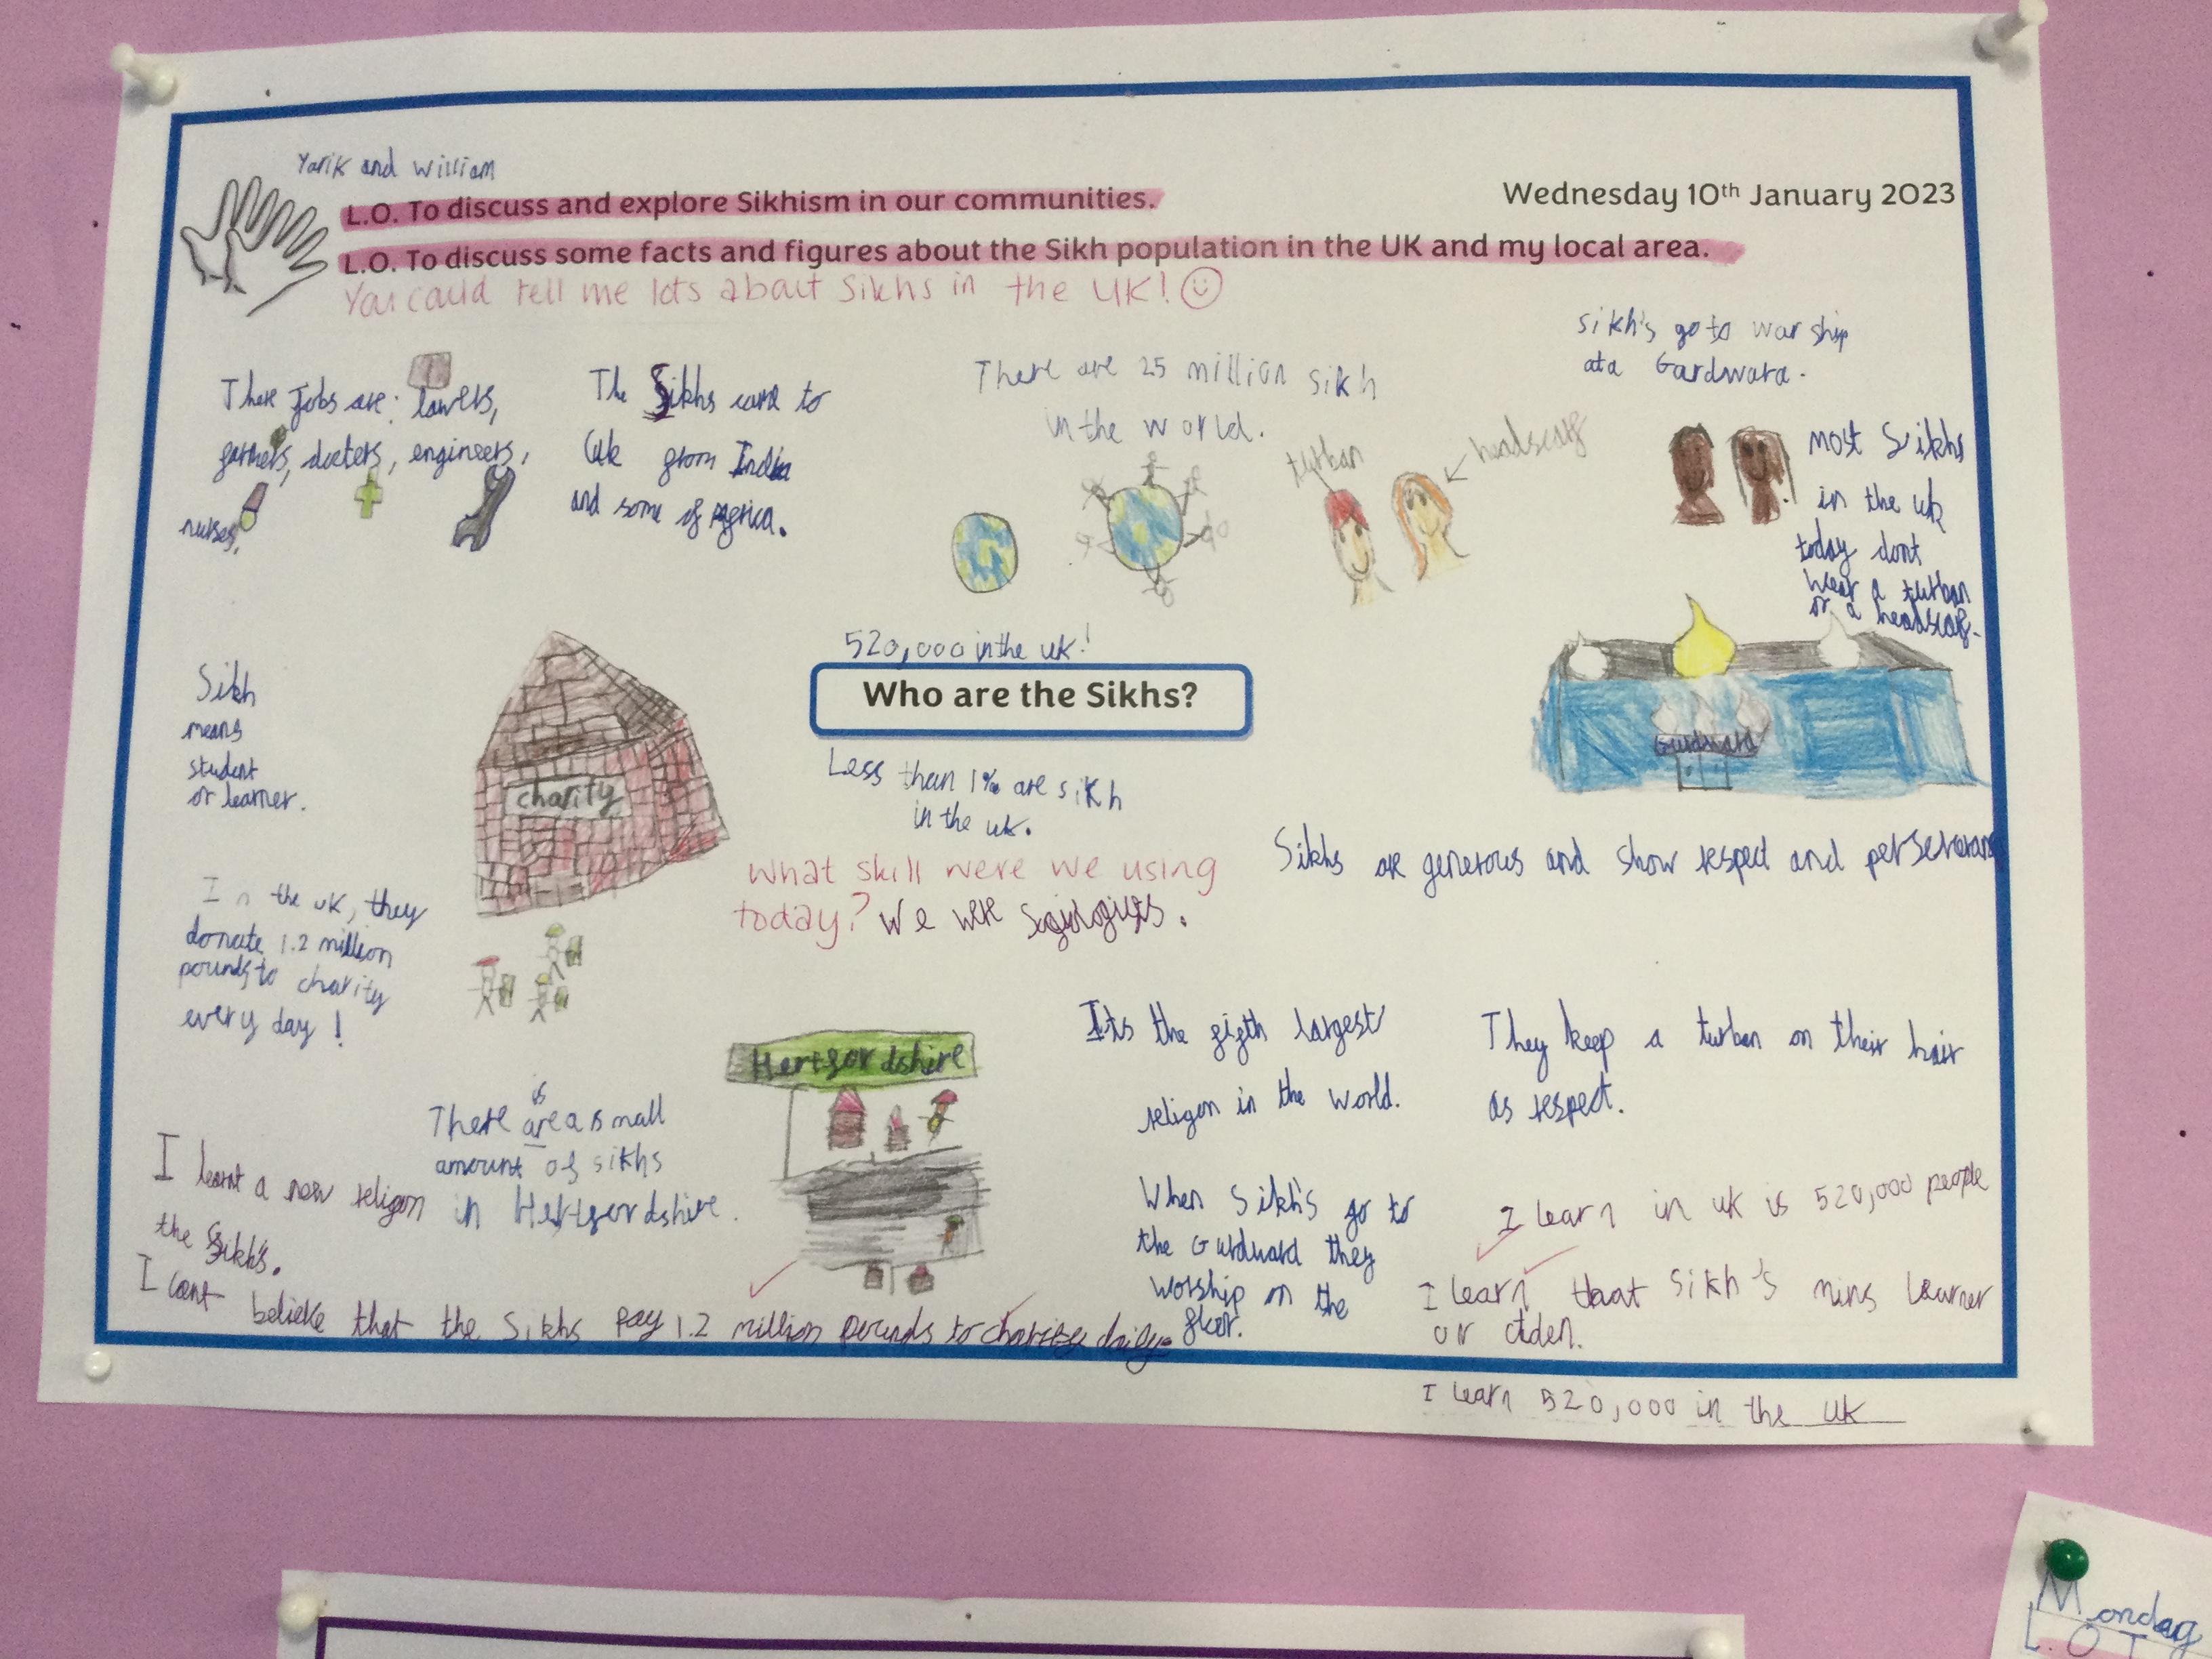 Yarik and William
L.O. To discuss and explore Sikhism in our communities.
Wednesday 10th January 2023
L.O. To discuss some facts and figures about the Sikh population in the UK and my local area.
You could tell me lots about Sikhs in the UK! ☺
There Jobs are: lawers,
farmers, docters, engineers,
nurses.
The Sikhs came to
Uk from India
and some of Africa.
There are 25 million sikh
in the world.
turban
headscarf
sikh's go to warship
at a Gardwara.
most Sikhs
in the uk
today dont
wear a turban
or a headscarf.
Gurdwara
520,000 in the uk!
Who are the Sikhs?
Less than 1% are sikh
in the uk.
What skill were we using
today? We were
Sikh
means
student
or learner.
charity
In the uk, they
donate 1.2 million
pounds to charity
every day!
Sikhs are generous and show respect and
Hertfordshire
is
There are a small
amount of sikhs
in Hertfordshire.
Its the fifth largest
religon in the world.
They keep a turban on their hair
as respect.
When Sikh's go to
the Gurdward they
worship on the
floor.
I learnt a new religon
the Sikh's.
I cant believe that the Sikhs pay 1.2 million pounds to charity daily
I learn in uk is 520,000 people
I learn that Sikh's mins learner
or
I learn 520,000 in the UK
Monday
L.O T